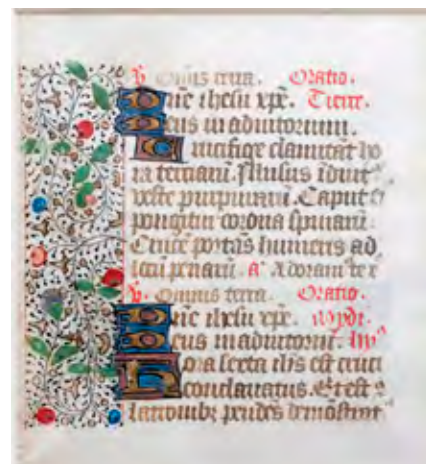 v̄ Omnis terra. Oratio.
Dn̄e ihesu xp̄e. Tierce.
Deus in adiutorium.
Crucifige clamitat ho
ra terciarū. Illusus īduit᷑
veste purpurarū. Caput
pungitur corona spinarū.
Cruce portās humeris ad
locū penarū. a᷑ Adoram᷑ te x
v̄. Omnis terra. Oratio.
Dn̄e ihesu xp̄e. Mydi.
Deus in adiutoriū. hy᷑
Hora sexta ih̄s est cruci
conclauatus. Et est
latronibꝫ pendēs